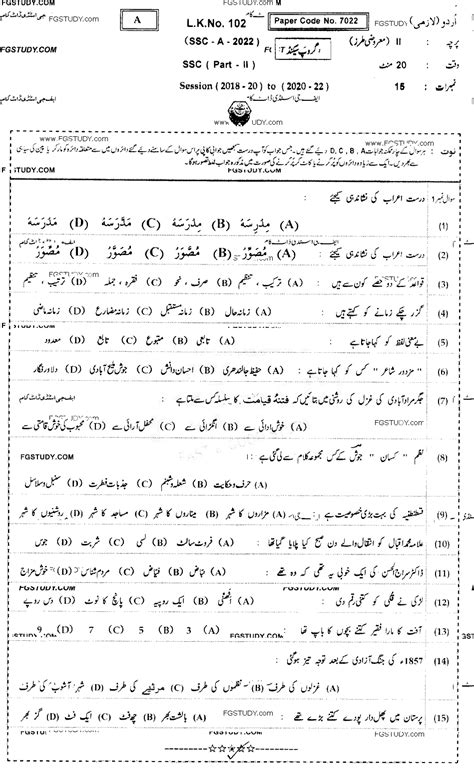 FGSTUDY.com
A
L.K.No. 102
Paper Code No. 7022
FGSTUDY.com
اردو (لازمی)
(SSC - A - 2022)
گروپ سیکنڈ
پرچہ : II (معروضی طرز)
SSC (Part - II)
وقت : 20 منٹ
Session (2018 - 20) to (2020 - 22)
نمبرات : 15
ایف جی اسٹڈی ڈاٹ کام
www.FGSTUDY.com
نوٹ :
سوال نمبر 1 درست اعراب کی نشاندہی کیجئے
(1) (A) (B) (C) (D)
(2) درست اعراب کی نشاندہی کیجئے (A) (B) (C) (D)
(3) قواعد کے دو حصے کون سے ہیں : (A) ترکیب ، تنظیم (B) صرف ، نحو (C) فقرہ ، جملہ (D) ترتیب ، تنظیم
(4) گزر چکے زمانے کو کہتے ہیں : (A) زمانہ حال (B) زمانہ مستقبل (C) زمانہ مضارع (D) زمانہ ماضی
(5) بے معنی لفظ کو کہا جاتا ہے : (A) تابعی (B) متبوع (C) تابع (D) معدود
(6) " مزدور شاعر " کس کو کہا جاتا ہے : (A) حفیظ جالندھری (B) احسان دانش (C) جوش ملیح آبادی (D) دلاور نگار
(7) جگر مراد آبادی کی غزل کی روشنی میں بتائیں کہ فتنۂ قیامت کا سلسلہ کس سے ملتا ہے :
(A) خوش ادائی سے (B) انگڑائی سے (C) محفل آرائی سے (D) محبوب کی خوش قامتی سے
(8) نظم " کسان " جوش کے کس مجموعہ کلام سے لی گئی ہے :
(A) حرف و حکایت (B) شعلہ و شبنم (C) جذبات فطرت (D) سنبل و سلاسل
(9) قسطنطنیہ کی بہت بڑی خصوصیت ہے : (A) مزاروں کا شہر (B) میناروں کا شہر (C) مساجد کا شہر (D) روشنیوں کا شہر
(10) علامہ محمد اقبال کو انتقال والے دن صبح کیا پلایا گیا تھا : (A) فروٹ سالٹ (B) لسی (C) شربت (D) جوس
(11) ڈاکٹر سراج الحسن کی ایک خوبی یہ تھی کہ وہ تھے : (A) نباض (B) فیاض (C) مردم شناس (D) خوش مزاج
(12) لڑکی نے قلی کو کتنی رقم دی : (A) اٹھنی (B) ایک روپیہ (C) پانچ کا نوٹ (D) دس روپے
(13) آفت کا مارا فقیر کتنے بچوں کا باپ تھا : (A) 3 (B) 5 (C) 7 (D) 9
(14) 1857ء کی جنگ آزادی کے بعد توجہ تیز ہو گئی :
(A) غزلوں کی طرف (B) نظموں کی طرف (C) مرثیے کی طرف (D) شہر آشوب کی طرف
(15) پرستان میں پھل دار پودے کتنے بڑے تھے : (A) بالشت بھر (B) چھ فٹ (C) ایک فٹ (D) گز بھر
FGSTUDY.com